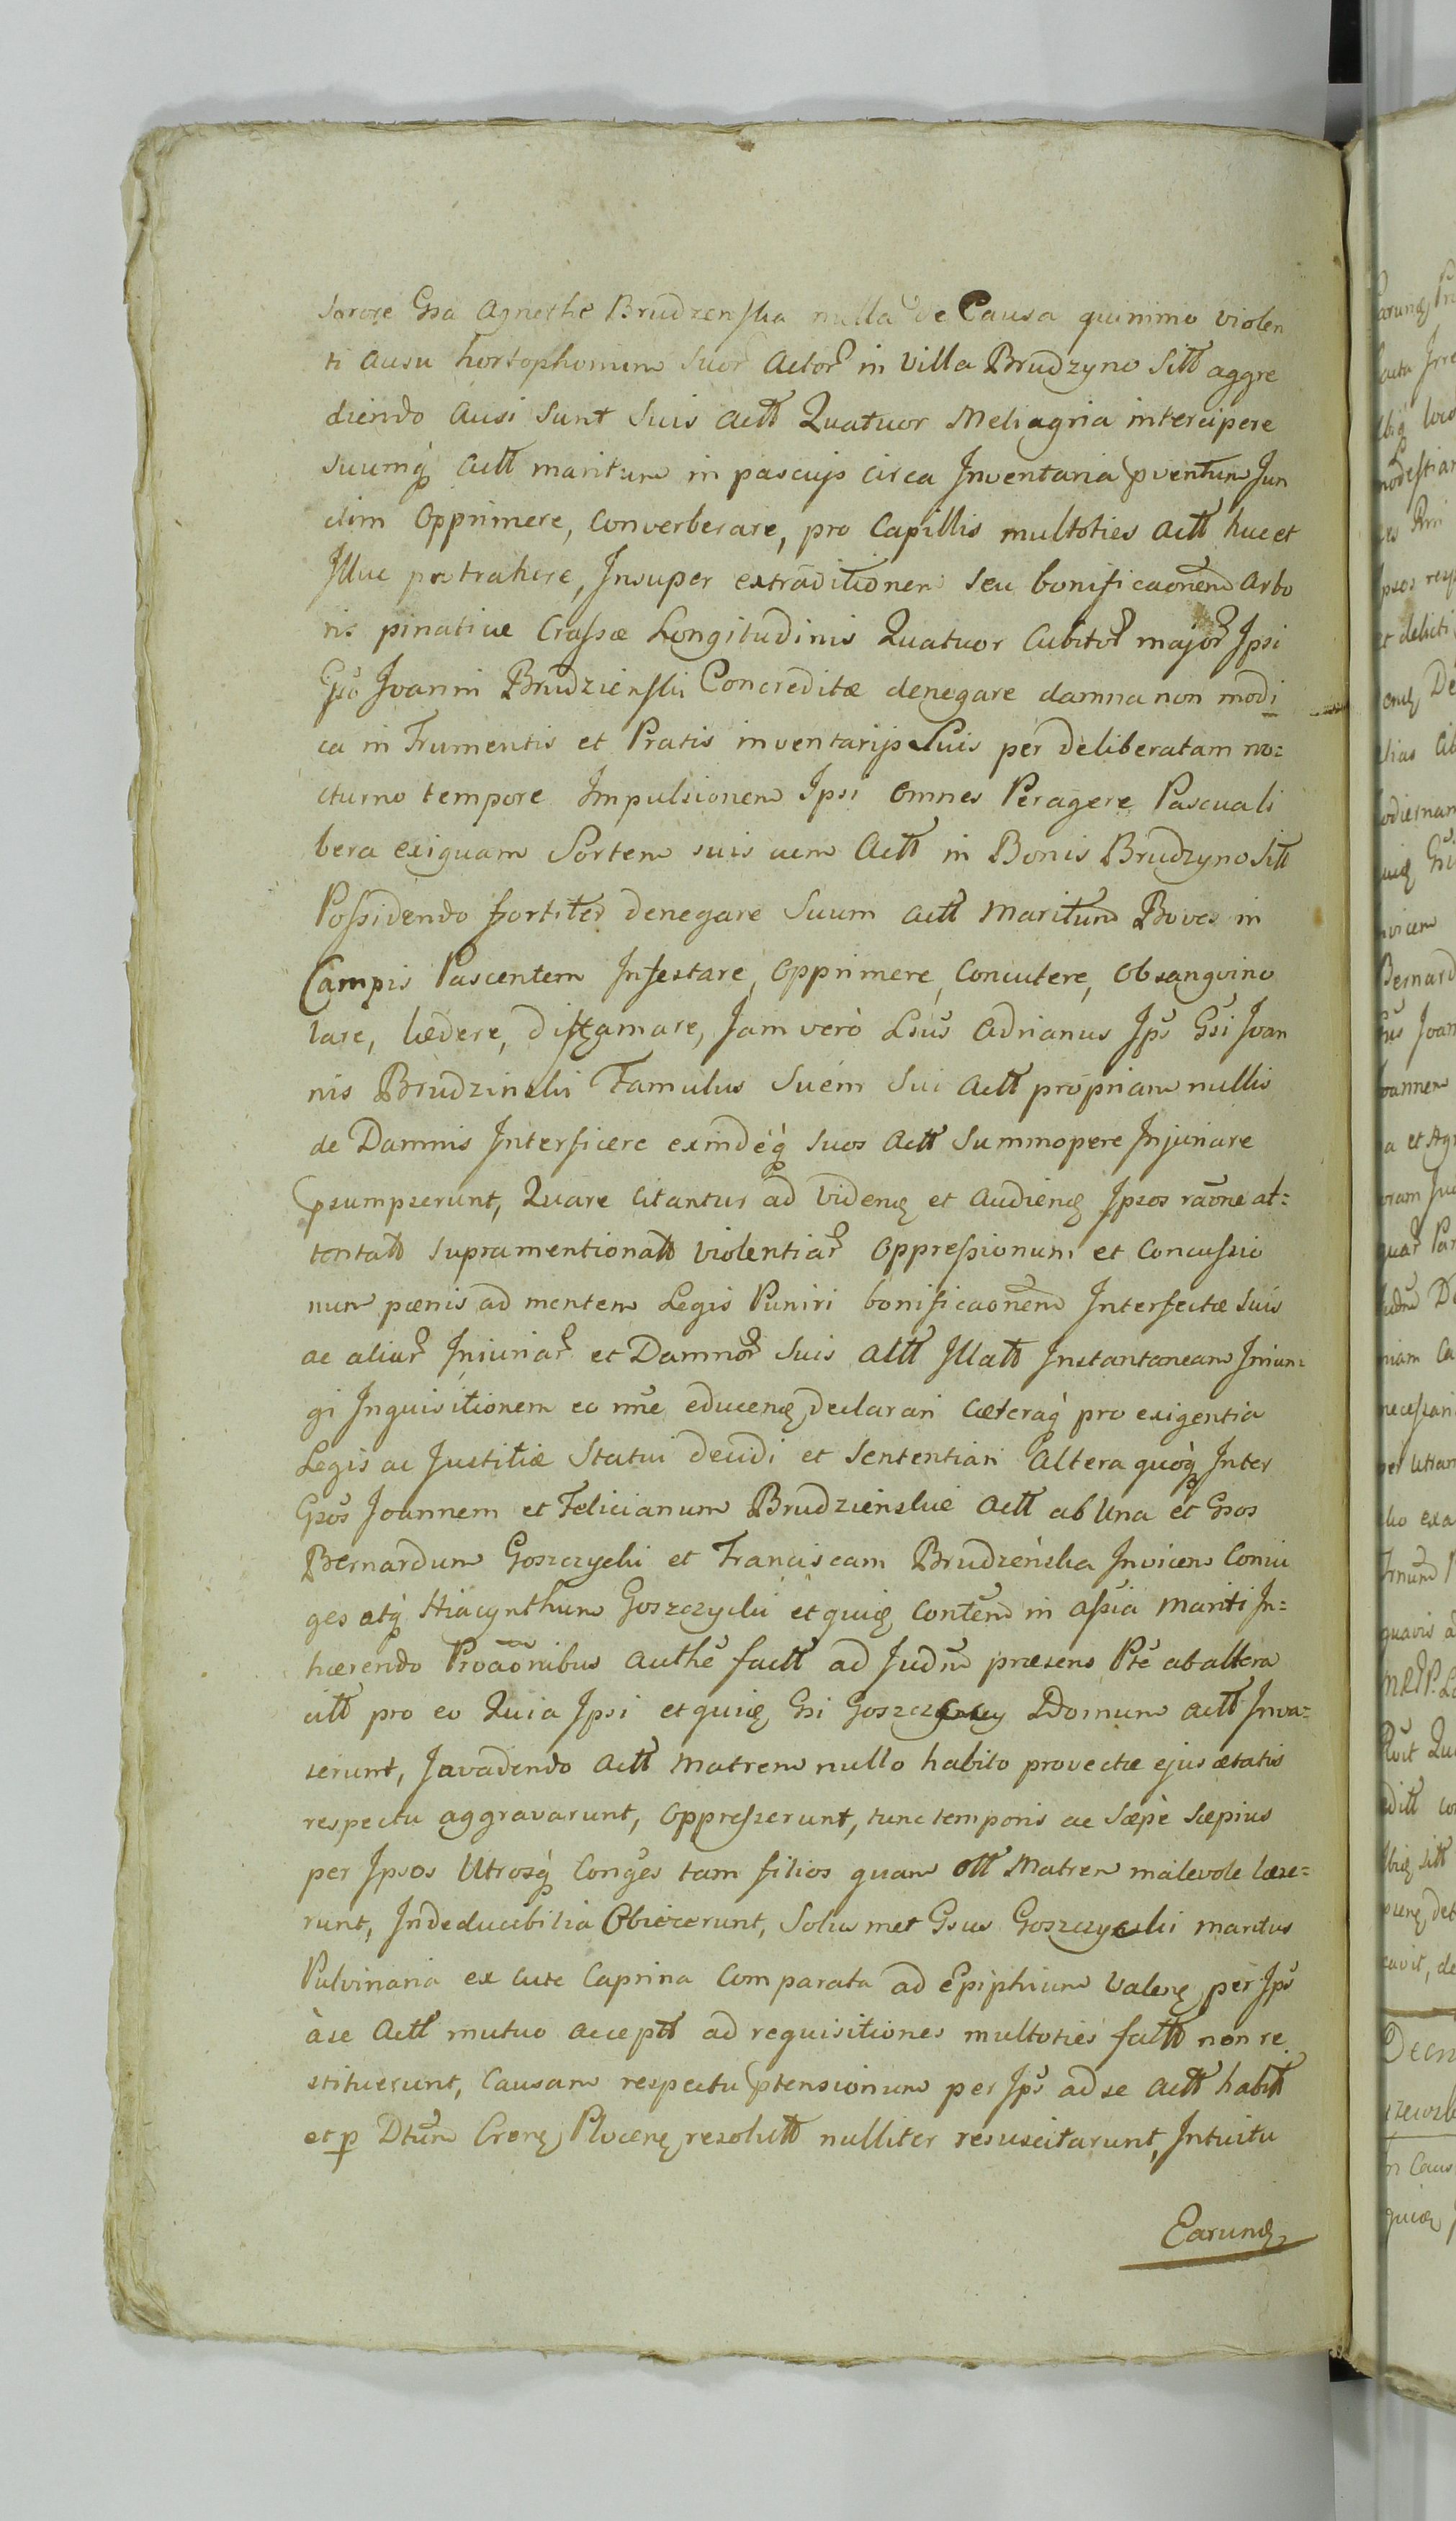 sorore Gsa Agnethe Brudzenska nulla de Causa quinimo violen
ti ausu hortophomum suor Actor in Villa Brudzyno Sitt aggre
diendo Ausi Sunt Suis Actt Quatuor Meliagria intercipere
suumq Actt maritum in pascuis circa Inventaria pventum Jun
ctim Opprimere, Converberare, pro Capillis multoties Actt huc et
Illuc protrahere, Insuper extraditionem seu bonificaonem Arbo
ris pinative Crassæ Longitudinis Quatuor Cubitor major Ipsi
Gso Joanni Brudzienski Concreditæ denegare damna non modi
ca in Frumentis et Pratis inventarijs Suis per deliberatam no=
cturno tempore Impulsionem Ipsi omnes Peragere Pascua li
bera exiguam Sortem suis Actt in Bonis Brudzyno Sitt
Possidendo fortiter denegare Suum Actt Maritum Boves in
Campis Pascentem Infestare, Opprimere, Concutere, Obsanguino
lare, lædere, diffamare, Jam verò Lsus Adrianus Ips Gsi Joan
nis Brudzinski Famulus Suem Sui Actt propriam nullis
de Damnis Interficere exindeq suos Actt Summopere Injuriare
psumpserunt, Quare Citantur ad Videnq et Audienq Ipsos raone at=
tentatt supramentionatt violentiar Oppressionum et Concussio
num pœnis ad mentem Legis Puniri bonificaonem Interfectæ Suis
ac aliar Iniuriar et Damnor Suis Actt Illatt Instantaneam Iniun=
gi Inquisitionem eo nne educenq declarari Cæteraq pro exigentia
Legis ac Justitiæ Statui decidi et Sententiari Altera quoq Inter
Gsos Joannem et Felicianum Brudzienskie Actt ab Una et Gsos
Bernardum Goszczycki et Franciscam Brudzeńska Invicem Coniu
ges atq Hiacynthum Goszczycki et quiq Contem in Assia Mariti In=
hærendo Proaonibus Authe factt ad Judm præsens Pte ab altera
citt pro eo Quia Ipsi et quiq Gsi Goszczyccy Domum Actt Inva=
serunt, Invadendo Actt Matrem nullo habito provectæ ejus ætatis
respectu aggravarunt, Oppresserunt, tunc temporis ac Sæpè Sæpius
per Ipsos Utrosq Conges tam filios quam Ott Matrem malevole læse=
runt, Indeducibilia Obiecerunt, Solus met Gsus Goszczycki maritus
Pulvinaria ex Cute Caprina Comparata ad Epiphium Valenq per Ips
à se Actt mutuo acceptt ad requisitiones multoties factt non re
stituerunt, Causam respectu ptensionum per Ips ad se Actt habitt
et p Dtum Crenq Plocenq resolutt nulliter resuscitarunt, Intuitu
Earunq